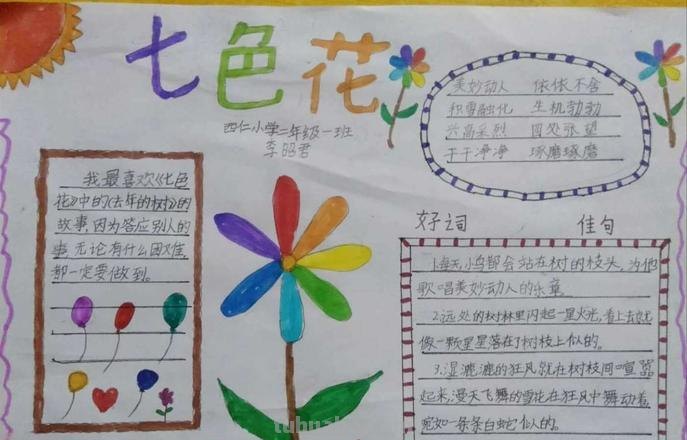 七色花
四仁小学二年级一班
李昭君
美妙动人 依依不舍
积雪融化 生机勃勃
兴高采烈 四处张望
干干净净 琢磨琢磨
好词 佳句
我最喜欢《七色
花》中的《去年的树》的
故事,因为答应别人的
事,无论有什么困难,
都一定要做到。
1.每天,小鸟都会站在树的枝头,为他
歌唱美妙动人的乐章。
2.远处的树林里闪起一星火光,看上去就
像一颗星星落在了树枝上似的。
3.湿漉漉的狂风就在树枝间喧嚣
起来,漫天飞舞的雪花在狂风中舞动着,
宛如一条条白蛇似的。